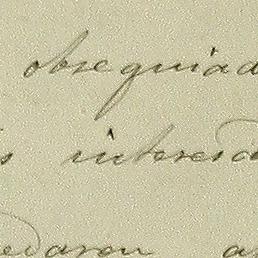 obsequiad
s interesa
edaron a